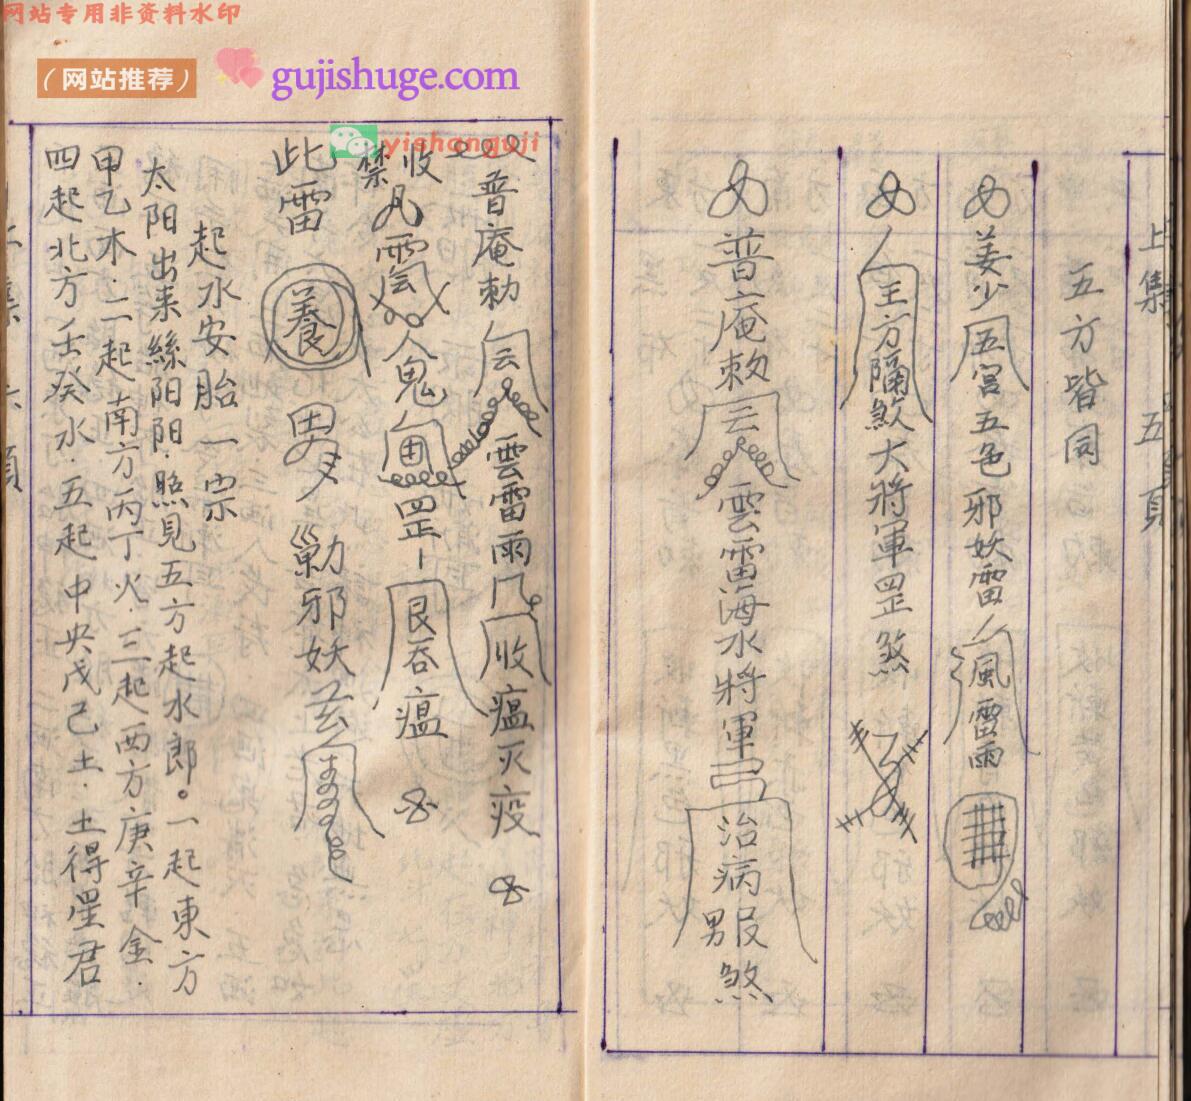 网站专用非资料水印
（网站推荐）
gujishuge.com
yishanguji
上集 五頁
五方皆同
姜少五宫五色邪妖雷 風雷雨
王方隔煞大将軍罡煞
普庵敕 雲雷海水将軍 治病男服煞
普庵勅 雲雷雨 收瘟灭疫
收禁 人鬼 罡 艮吞瘟
此雷 養 男 勦邪妖
起水安胎一宗
太阳出来絲阳阳.照見五方起水郎。一起東方
甲乙木.二起南方丙丁火.三起西方庚辛金.
四起北方壬癸水.五起中央戊己土.土得星君